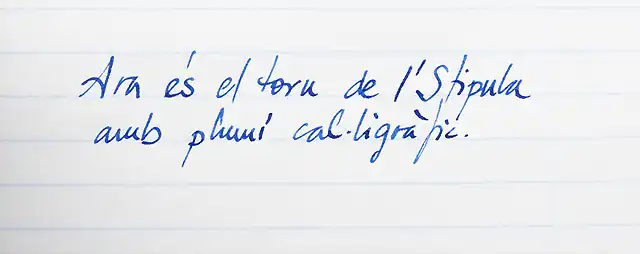 Ara és el torn de l'Stipula
amb plumí cal·ligràfic.